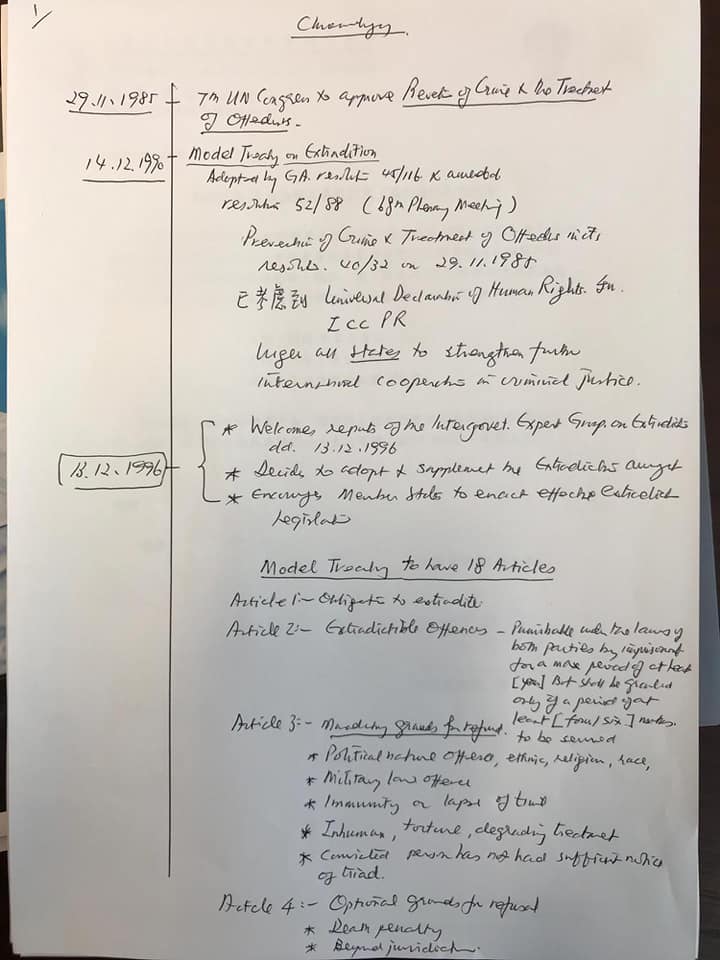 1/
Chronology.
29.11.1985 7th UN Congress to approve Prevention of Crime & the Treatment
of Offenders.
14.12.1990 Model Treaty on Extradition
Adopted by G.A. resolution 45/116 & amended
resolution 52/88 (68th Plenary Meeting)
Prevention of Crime & Treatment of Offenders in its
resolution. 40/32 on 29.11.1985
已考慮到 Universal Declaration of Human Rights.
ICCPR
Urges all States to strengthen further
international cooperation in criminal justice.
* Welcomes reports of the Intergovt. Expert Group on Extradition
dd. 13.12.1996
13.12.1996 * Decides to adopt & supplement the Extradition
* Encourages Member States to enact effective extradition
legislation
Model Treaty to have 18 Articles
Article 1:- Obligation to extradite
Article 2:- Extraditable Offences - Punishable under the laws of
both parties by imprisonment
for a max period of at least
[year] But shall be granted
only if a period of at
least [four/six] months.
to be served
Article 3:- Mandatory grounds for refusal.
* Political nature offence, ethnic, religion, race,
* Military law offence
* Immunity or lapse of time
* Inhuman, torture, degrading treatment
* Convicted person has not had sufficient notice
of trial.
Article 4:- Optional grounds for refusal
* Death penalty
* Beyond jurisdiction.